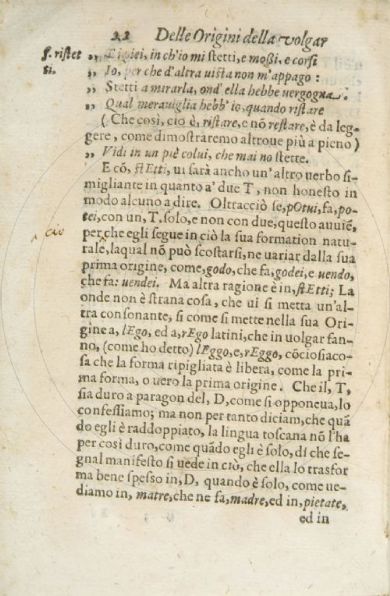 22 Delle Origini della volgar
f. ristet „ I' giei, in ch'io mi stetti, e moßi, e corsi
si. „ Io, per che d'altra uista non m'appago:
„ Stetti a mirarla, ond' ella hebbe vergogna.
„ Qual merauiglia hebb' io, quando ristare
(Che così, ciò è, ristare, e nõ restare, è da leg-
gere, come dimostraremo altroue più a pieno)
„ Vidi in un piè colui, che mai nõ stette.
E cõ, stEtti, ui sarà ancho un'altro verbo si-
migliante in quanto a' due T, non honesto in
modo alcuno a dire. Oltracciò se, pOtui, fa, po-
tei, con un, T. solo, e non con due, questo auuiẽ,
cio per che egli segue in ciò la sua formation natu-
rale, laqual nõ può scostarsi, ne uariar dalla sua
prima origine, come, godo, che fa, godei, e uendo,
che fa: uendei. Ma altra ragione è in, stEtti; La
onde non è strana cosa, che ui si metta un'al-
tra consonante, si come si mette nella sua Ori-
gine a, lEgo, ed a, rEgo latini, che in volgar fan-
no, (come ho detto) lEggo, e, rEggo, cõciosiaco-
sa che la forma ripigliata è libera, come la pri-
ma forma, o uero la prima origine. Che il, T,
sia duro a paragon del, D, come si opponeua, lo
confessiamo; ma non per tanto diciam, che quã
do egli è raddoppiato, la lingua toscana nõ l'ha
per così duro, come quãdo egli è solo, di che se-
gnal manifesto si uede in ciò, che ella lo trasfor
ma bene spesso in, D, quando è solo, come ue-
diamo in, matre, che ne fa, madre, ed in, pietate,
ed in